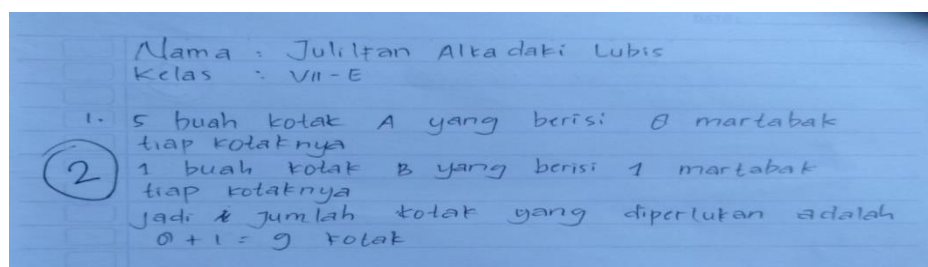 Nama : Julilfan Alkadaki Lubis
Kelas : VII - E
1. 5 buah kotak A yang berisi 8 martabak
tiap kotaknya
2 1 buah kotak B yang berisi 1 martabak
tiap kotaknya
jadi jumlah kotak yang diperlukan adalah
8 + 1 = 9 kotak